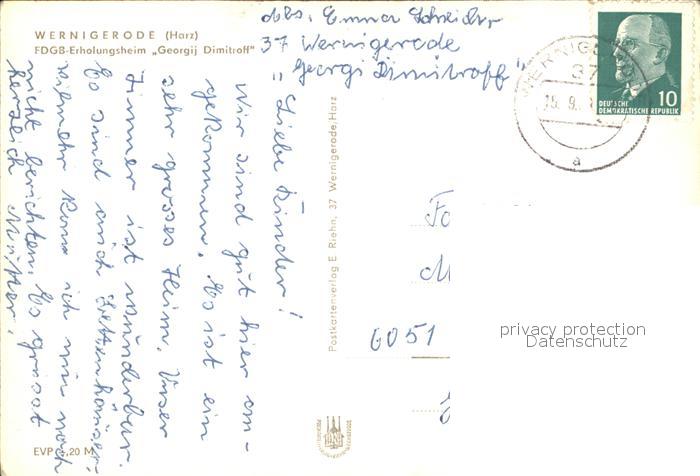 WERNIGERODE (Harz)
FDGB-Erholungsheim „Georgij Dimitroff"
Abs. Emma
37 Wernigerode
„Georgi Dimitroff"
WERNIGERODE
37
15. 9.
a
DEUTSCHE
DEMOKRATISCHE REPUBLIK
10
Liebe Kinder!
Wir sind gut hier an-
gekommen. Es ist ein
sehr grosses Heim. Unser
Zimmer ist wunderbar.
Es sind auch Bettenhäuser.
mehr kann ich nun noch
nicht berichten. Es grüsst
herzlich Mutter.
Postkartenverlag E. Riehn, 37 Wernigerode/Harz
6051
privacy protection
Datenschutz
EVP 0,20 M